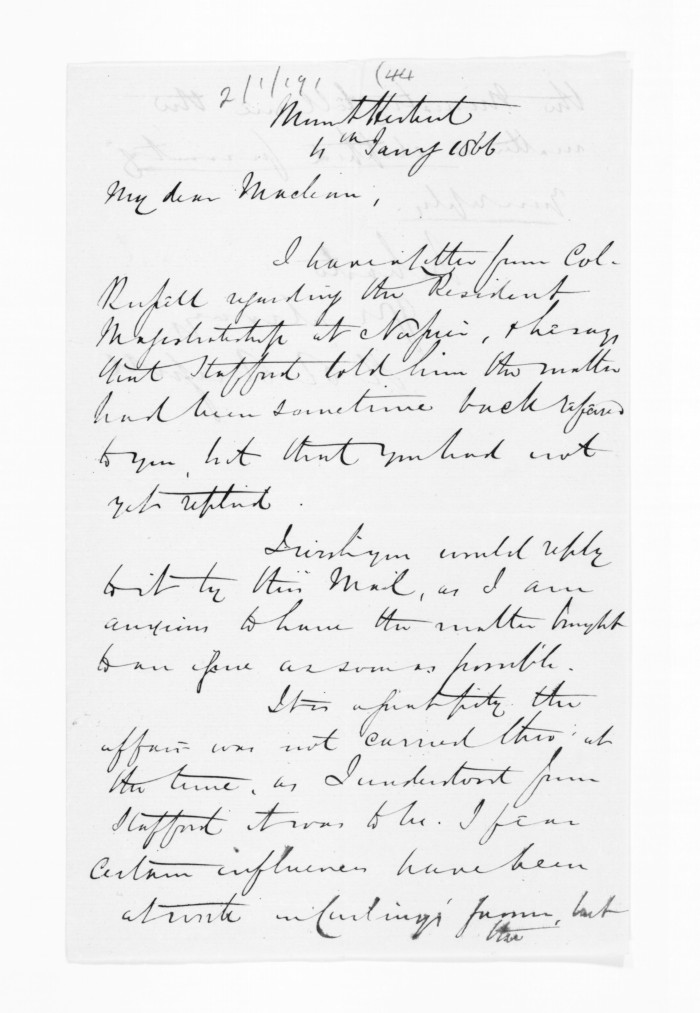 2/1/191 (44
Mount Herbert
4th Jany 1866
My dear Maclean,
I have a letter from Col.
Russell regarding the Resident
Magistrateship at Napier, & he says
that Stafford told him the matter
had been sometime back referred
to you, but that you had not
yet replied.
I wish you would reply
to it by this Mail, as I am
anxious to have the matter brought
to an issue as soon as possible.
It is a great pity the
affair was not carried thro' at
the time, as I understood from
Stafford it was to be. I fear
certain influences have been
at work in Curling's favour, but
the